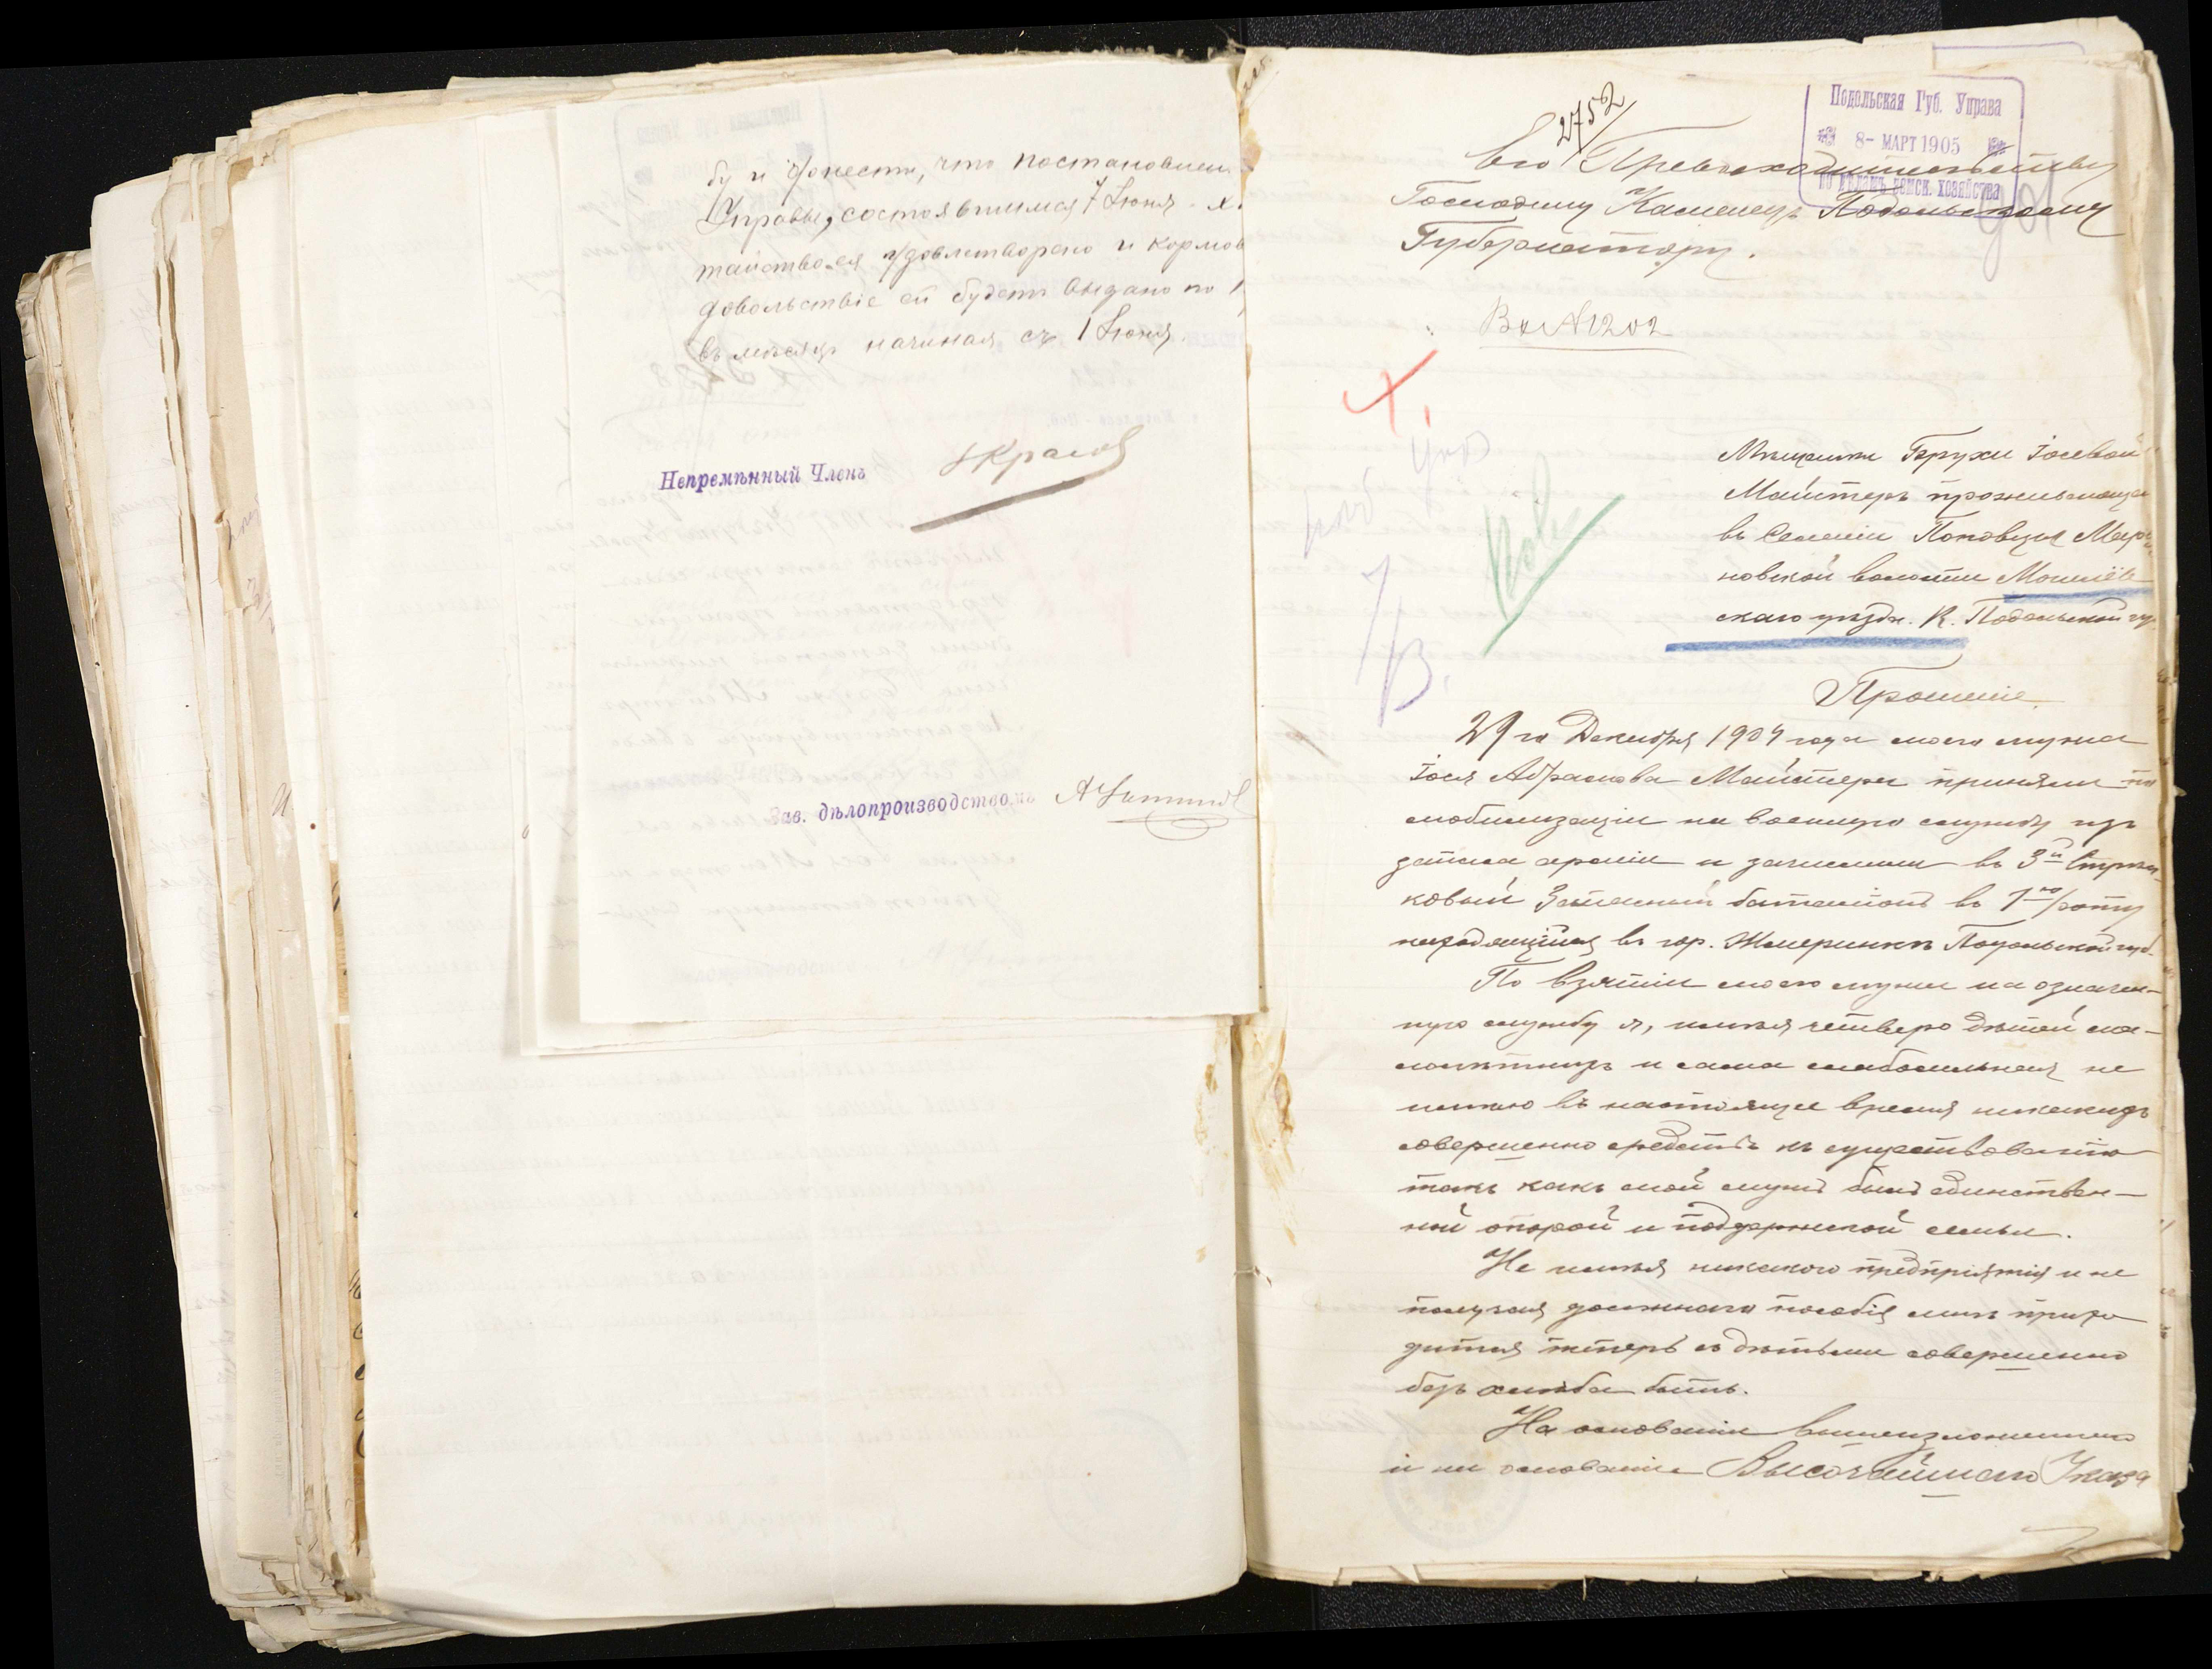 бу и донести, что постановлен
Управы, состоявшимся 7 Июня х.
тайство ея удовлетворено и кормов
довольствіе ей будетъ выдано по 1
въ мѣсяцъ начиная съ 1 Июня.
Непремѣнный Членъ
Зав. дѣлопроизводствомъ
2752
Подольская Губ. Управа
8- МАРТ 1905
по дѣламъ земск. хозяйства
Его Превосходительству
Господину Каменецъ Подольскому
Губернатору.
Вх № 1202
Мѣщанки Брухи Іосевой
Майстеръ проживающа
въ Селеніи Поповцы
новской волости Могилёв
скаго уѣзда. К. Подольской гу
Прошеніе.
29 го Декабря 1904 года моего мужа
Іося Абрамова Майстера приняли по
мобилизаціи на военную службу изъ
запаса арміи и зачислили въ 3й Стрѣл
ковый Запасный баталіонъ въ 1ю роту
находящійся въ гор. Жмеринкѣ Подольской губ.
По взятіи моего мужа на означен-
ную службу я, имѣя четверо дѣтей ма-
лолѣтнихъ и сама слабосильная не
имѣю въ настоящее время никакихъ
совершенно средствъ къ существованію
такъ какъ мой мужъ былъ единствен-
ной опорой и поддержкой семьи.
Не имѣя никакого предпріятія и не
получая должнаго пособія мнѣ прихо
дится теперь съ дѣтьми совершенно
безъ хлѣба быть.
На основаніи вышеизложеннаго
и на основаніи Высочайшаго Указа